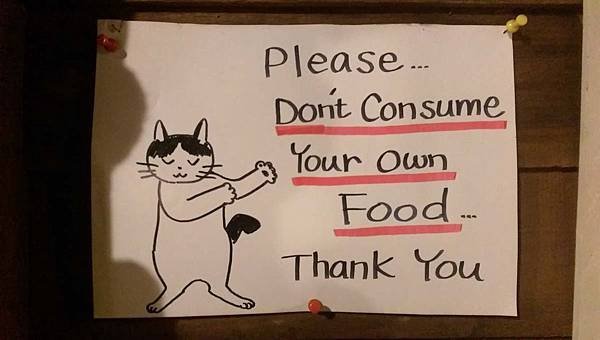 Please...
Don't Consume
Your Own
Food...
Thank You